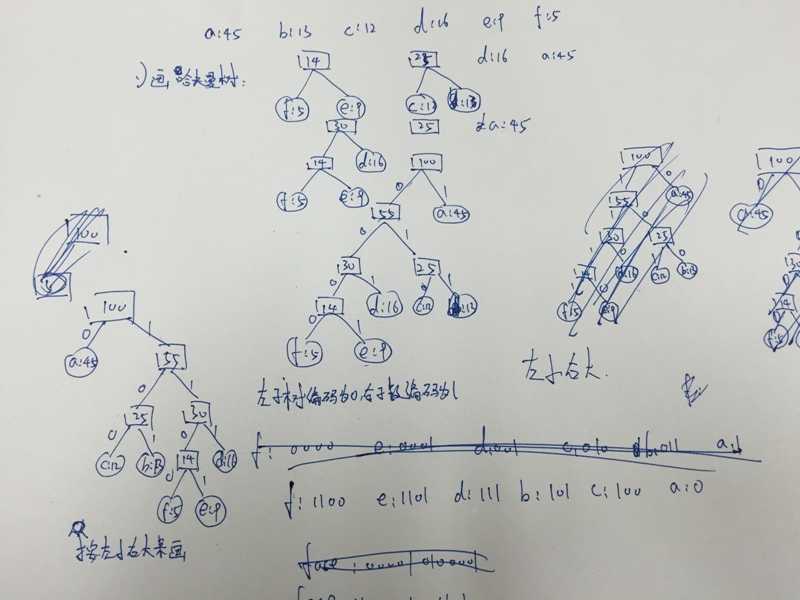 a:45 b:13 c:12 d:16 e:9 f:5
1)画哈夫曼树:
14 25 d:16 a:45
f:5 e:9 c:12 b:13
30 25 a:45
14 d:16
f:5 e:9
100
0 1
55 a:45
0 1
30 25
0 1 0 1
14 d:16 c:12 b:13
0 1
f:5 e:9
100
1 0
55 a:45
30 25
14 d:16 c:12 b:13
f:5 e:9
100
0
a:45
30
14
100
100
0 1
a:45 55
0 1
25 30
0 1 0 1
c:12 b:13 14 d:16
0 1
f:5 e:9
按左小右大来画
左小右大.
左子树编码为0,右子数编码为1
f: 0000 e:0001 d:001 c:010 b:011 a:1
f:1100 e:1101 d:111 b:101 c:100 a:0